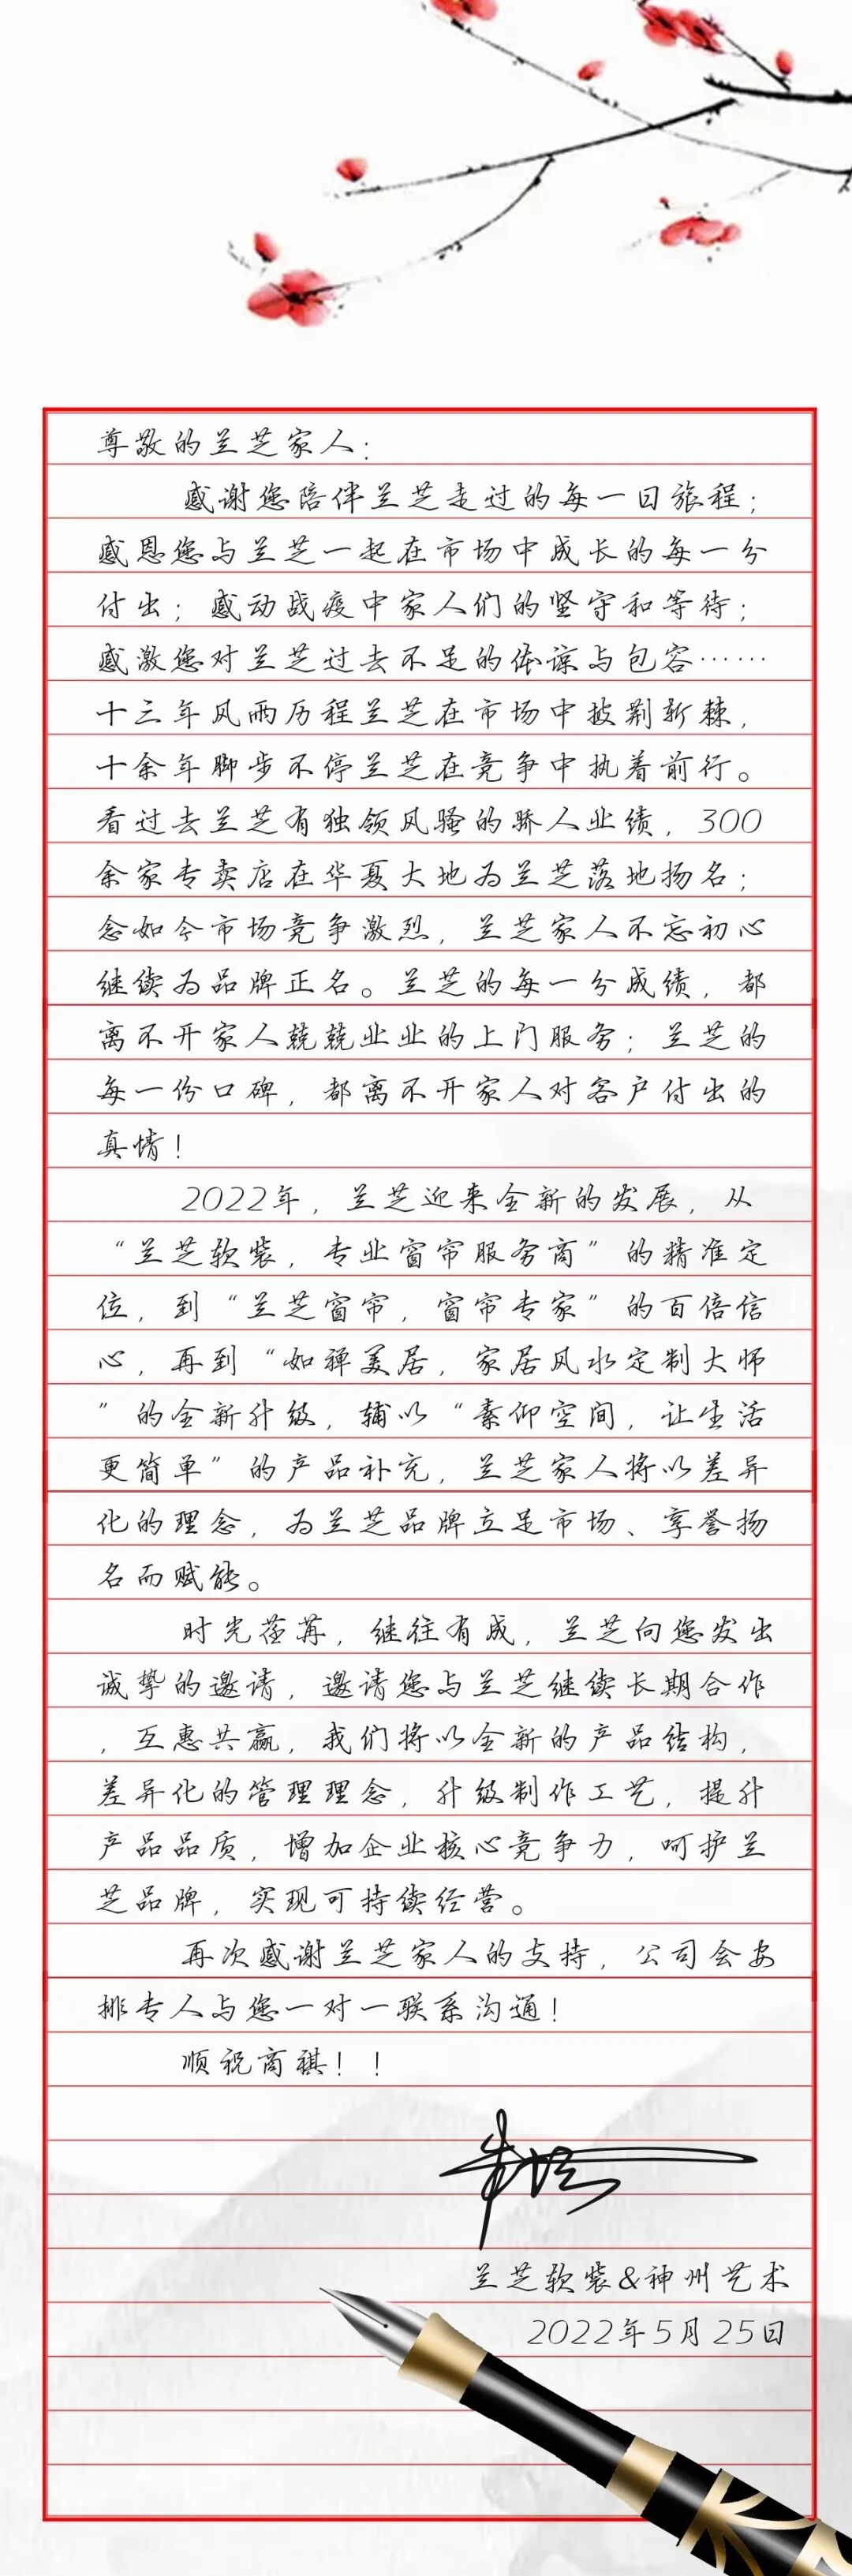 尊敬的兰芝家人：
感谢您陪伴兰芝走过的每一日旅程；
感恩您与兰芝一起在市场中成长的每一分
付出；感动战疫中家人们的坚守和等待；
感激您对兰芝过去不足的体谅与包容……
十三年风雨历程兰芝在市场中披荆斩棘，
十余年脚步不停兰芝在竞争中执着前行。
看过去兰芝有独领风骚的骄人业绩，300
余家专卖店在华夏大地为兰芝落地扬名；
念如今市场竞争激烈，兰芝家人不忘初心
继续为品牌正名。兰芝的每一分成绩，都
离不开家人兢兢业业的上门服务；兰芝的
每一份口碑，都离不开家人对客户付出的
真情！
2022年，兰芝迎来全新的发展，从
“兰芝软装，专业窗帘服务商”的精准定
位，到“兰芝窗帘，窗帘专家”的百倍信
心，再到“如禅美居，家居风水定制大师
”的全新升级，辅以“素仰空间，让生活
更简单”的产品补充，兰芝家人将以差异
化的理念，为兰芝品牌立足市场、享誉扬
名而赋能。
时光荏苒，继往有成，兰芝向您发出
诚挚的邀请，邀请您与兰芝继续长期合作
，互惠共赢，我们将以全新的产品结构，
差异化的管理理念，升级制作工艺，提升
产品品质，增加企业核心竞争力，呵护兰
芝品牌，实现可持续经营。
再次感谢兰芝家人的支持，公司会安
排专人与您一对一联系沟通！
顺祝商祺！！
兰芝软装&神州艺术
2022年5月25日